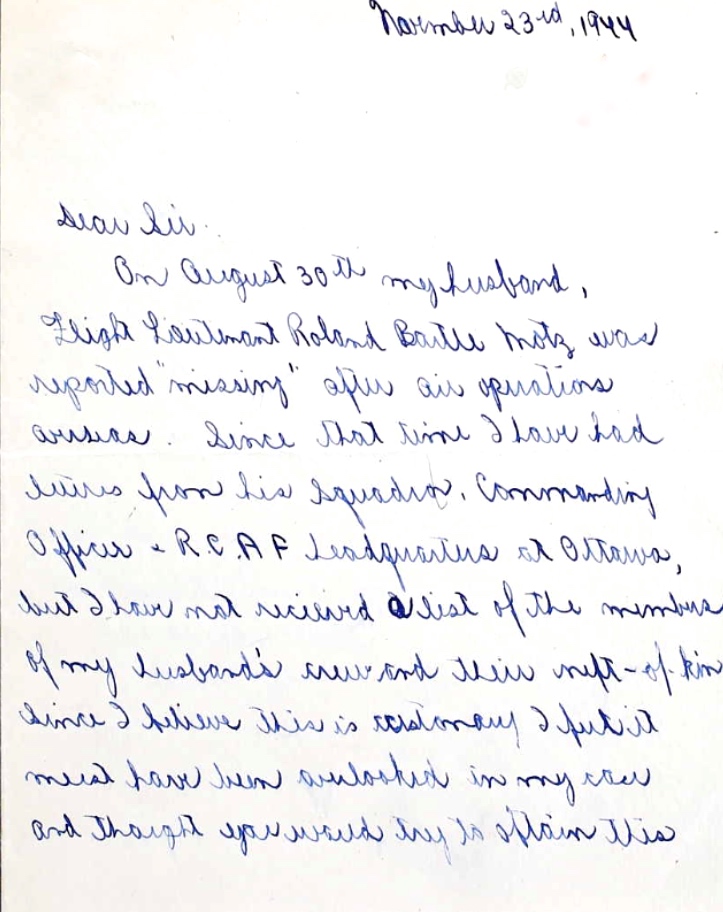 November 23rd, 1944
Dear Sir:
On August 30th my husband,
Flight Lieutenant Roland Battle Motz was
reported "missing" after air operations
overseas. Since that time I have had
letters from his Squadron, Commanding
Officer & R.C.A F Headquarters at Ottawa,
but I have not received a list of the members
of my husband's crew and their next-of-kin
Since I believe this is customary I felt it
must have been overlooked in my case
and thought you